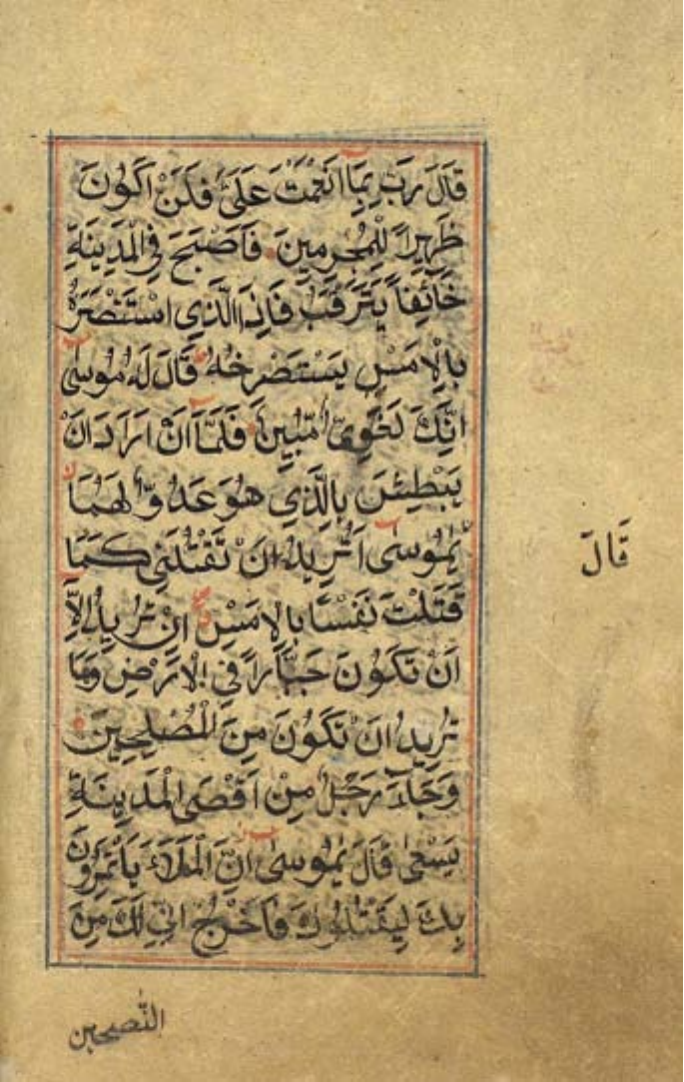 قَالَ رَبِّ بِمَا اَنْعَمْتَ عَلَىَّ فَلَنْ اَكُونَ
ظَهِيراً لِلْمُجْرِمِينَ فَاَصْبَحَ فِي الْمَدِينَةِ
خَآئِفاً يَتَرَقَّبُ فَاِذَا الَّذِي اسْتَنْصَرَهُ
بِالْاَمْسِ يَسْتَصْرِخُهُ قَالَ لَهُ مُوسٰى
اِنَّكَ لَغَوِىٌّ مُّبِينٌ فَلَمَّا اَنْ اَرَادَ اَنْ
يَبْطِشَ بِالَّذِي هُوَ عَدُوٌّ لَهُمَا
يٰمُوسٰى اَتُرِيدُ اَنْ تَقْتُلَنِي كَمَا
قَتَلْتَ نَفْسًا بِالْاَمْسِ اِنْ تُرِيدُ اِلَّا
اَنْ تَكُونَ جَبَّاراً فِي الْاَرْضِ وَمَا
تُرِيدُ اَنْ تَكُونَ مِنَ الْمُصْلِحِينَ
وَجَآءَ رَجُلٌ مِنْ اَقْصَى الْمَدِينَةِ
يَسْعٰى قَالَ يٰمُوسٰى اِنَّ الْمَلَاَ يَاْتَمِرُونَ
بِكَ لِيَقْتُلُوكَ فَاخْرُجْ اِنِّي لَكَ مِنَ
النّٰصِحِين
قَالَ